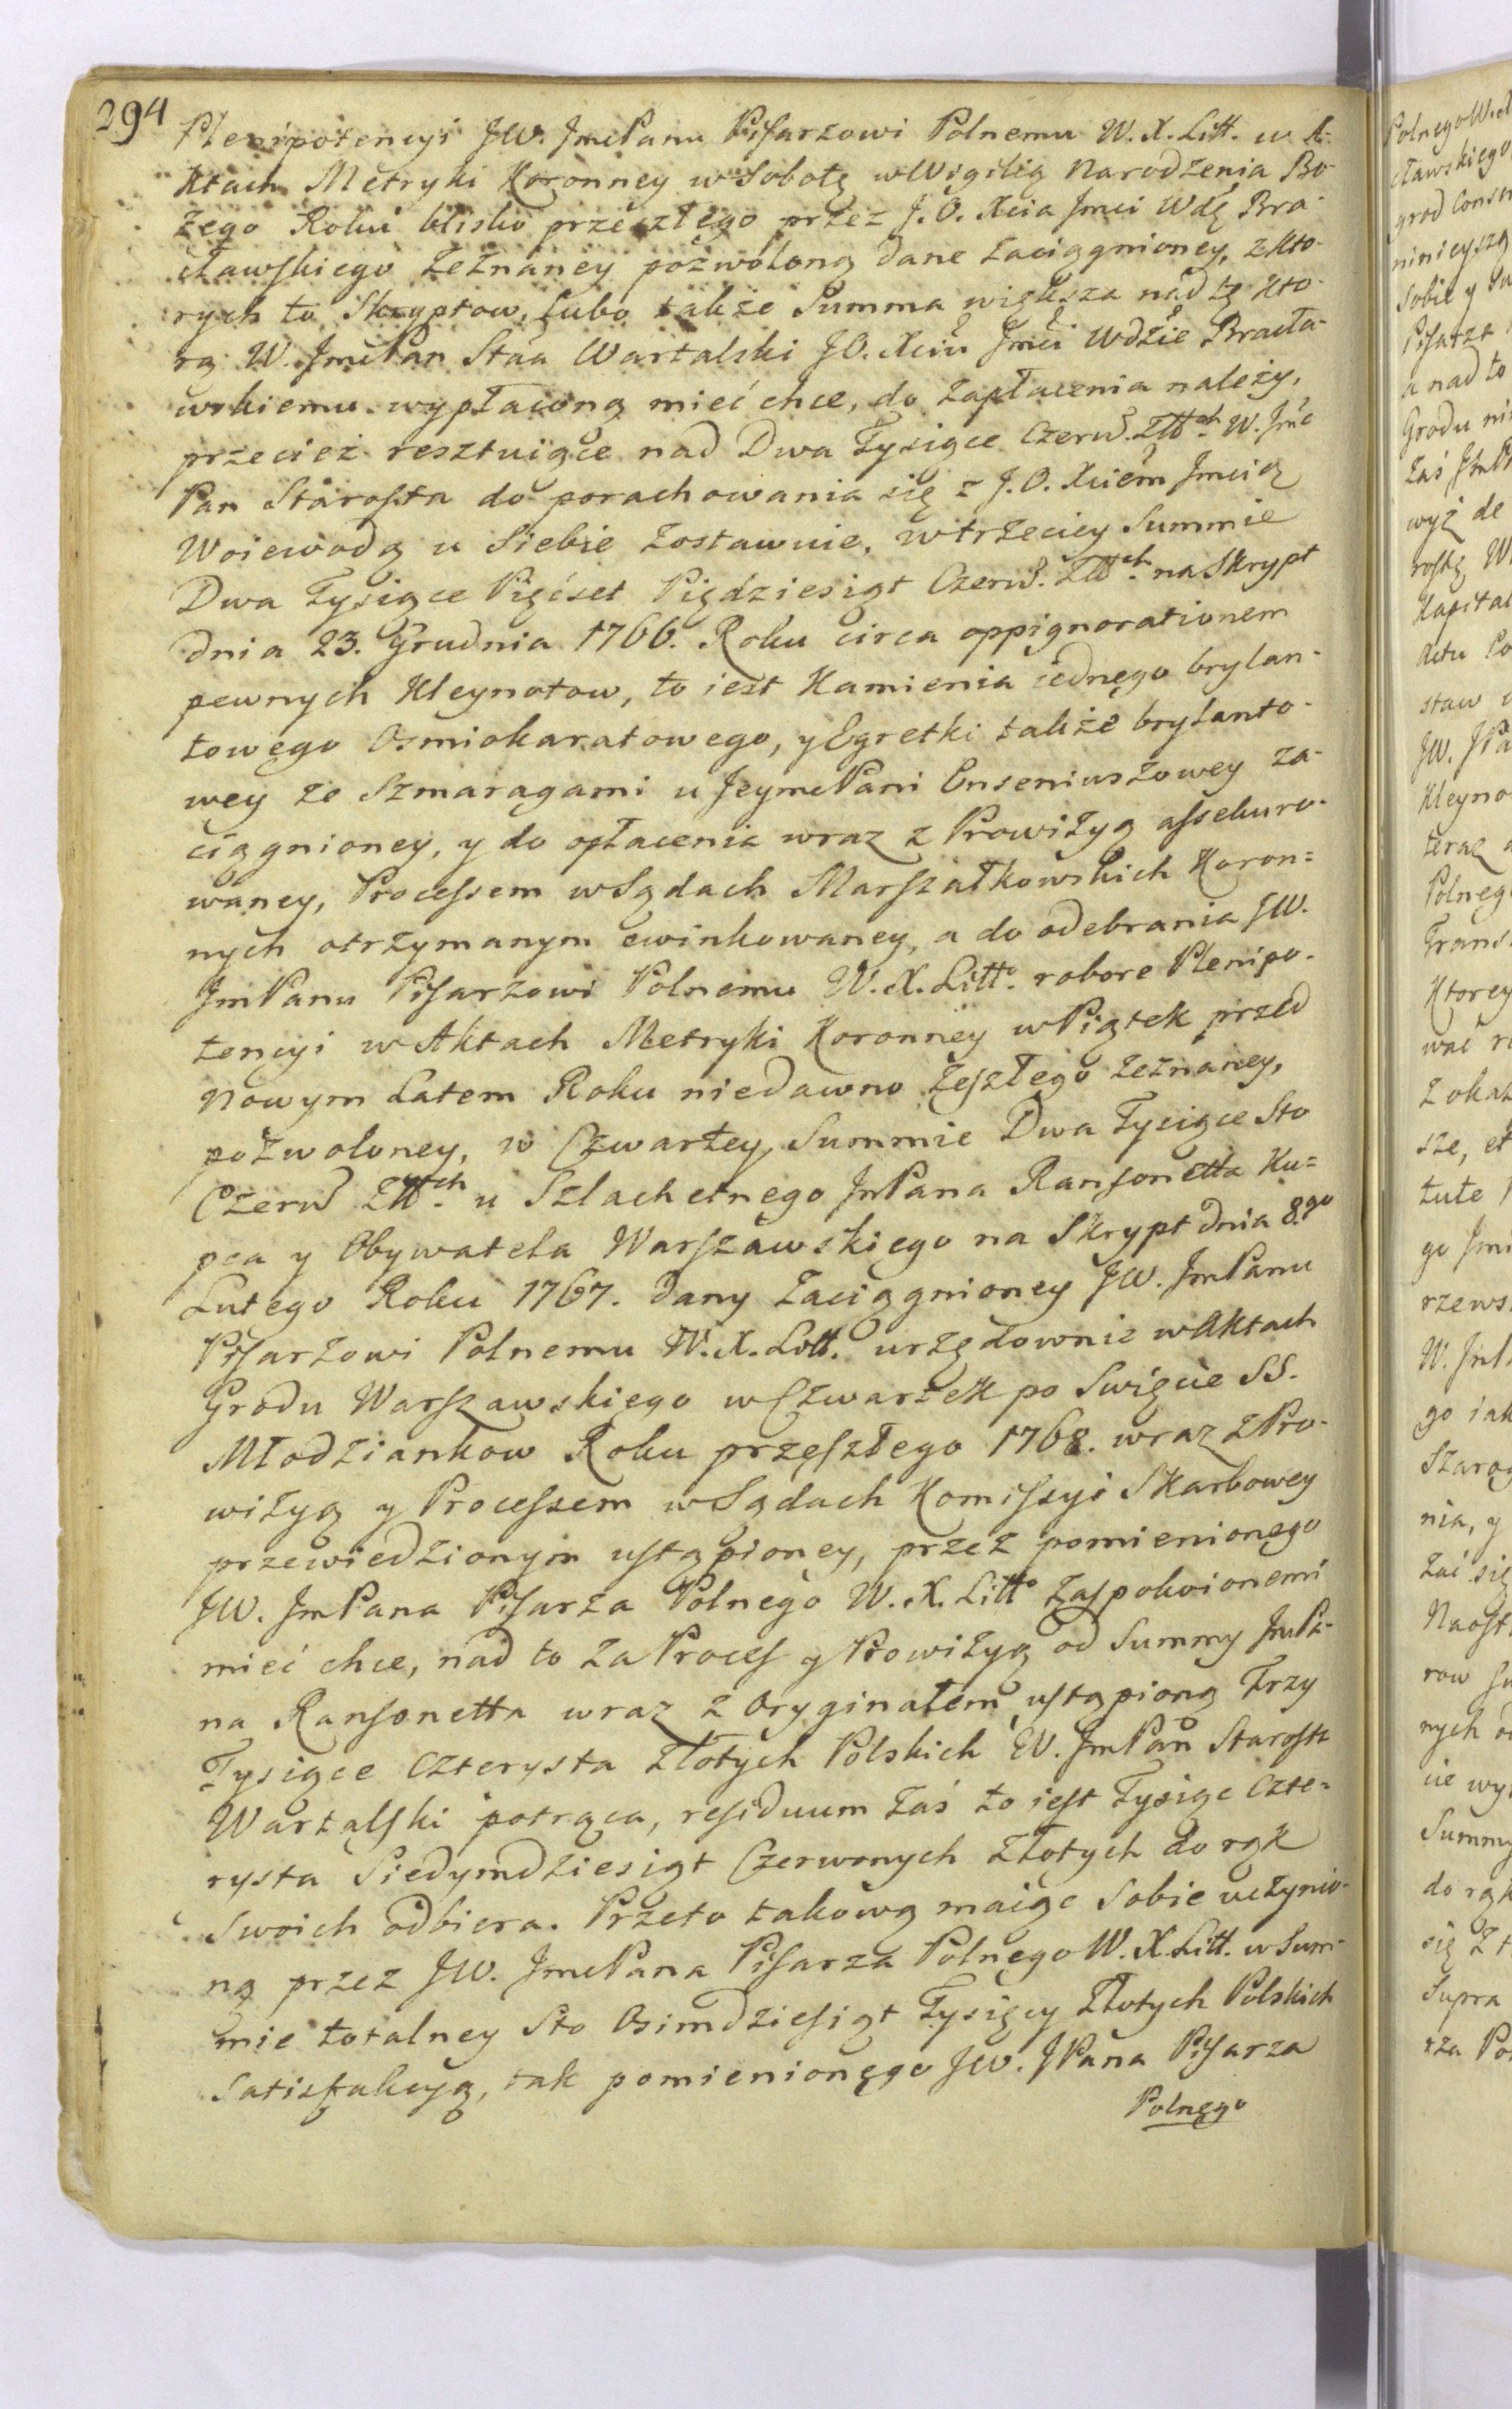 294
Plenipotencyi JW. JmcPanu Pisarzowi Polnemu W. X. Litt. w A-
ktach Metryki Koronney w Sobotę w Wigilią Narodzenia Bo-
żego Roku blisko przeszłego przez J. O. Xcia Jmci Wdę Bra-
cławskiego zeznaney pozwoloną dane zaciągnioney, z kto-
rych to Skryptow, lubo także Summa większa nad tę kto-
rą W. JmcPan Stta Wartalski JO. Xciu Jmci Wdzie Bracła-
wskiemu wypłaconą mieć chce, do zapłacenia należy,
przecież resztuiące nad Dwa Tysiące Czerw. Złłch W. Jmć
Pan Starosta do porachowania się z J. O. Xciem Jmcią
Woiewodą u siebie zostawuie, w trzeciey Summie
Dwa Tysiące Pięćset Pięćdziesiąt Czerw. Złłch na Skrypt
dnia 23. Grudnia 1766. Roku circa oppignorationem
pewnych Kleynotow, to iest Kamienia iednego brylan-
towego Osmiokaratowego, y Egretki także brylanto-
wey ze Szmaragami u JeymcPani Enseniuszowey za-
ciągnioney, y do opłacenia wraz z Prowizyą assekuro-
waney, Processem w Sądach Marszałkowskich Koron=
nych otrzymanym ewinkowaney, a do odebrania JW.
JmPanu Pisarzowi Polnemu W. X. Litto. robore Plenipo-
tencyi w Aktach Metryki Koronney w Piątek przed
Nowym Latem Roku niedawno zeszłego zeznaney,
pozwoloney, w Czwartey Summie Dwa Tysiące Sto
Czerw Złłch u Szlachetnego JmPana Ransonetta Ku=
pca y Obywatela Warszawskiego na Skrypt dnia 8.go
Lutego Roku 1767. dany zaciągnioney JW. JmPanu
Pisarzowi Polnemu W. X. Litt. urzędownie w Aktach
Grodu Warszawskiego w Czwartek po Swięcie SS.
Młodziankow Roku przeszłego 1768. wraz z Pro-
wizyą y Processem w Sądach Komissyi Skarbowey
przewiedzionym ustąpioney, przez pomienionego
JW. JmPana Pisarza Polnego W. X. Litto zaspokoionemi
mieć chce, nad to za Proces y Prowizyą od Summy JmPa-
na Ransonetta wraz z Oryginałem ustąpioną Trzy
Tysiące Czterysta Złotych Polskich W. JmPan Starosta
Wartalski potrąca, residuum zaś to iest Tysiąc Czte=
rysta Siedymdziesiąt Czerwonych Złotych do rąk
Swoich odbiera. Przeto takową maiąc Sobie uczynio-
ną przez JW. JmcPana Pisarza Polnego W. X. Litt. w Sum-
mie totalney Sto Osimdziesiąt Tysięcy Złotych Polskich
Satisfakcyą, tak pomienionego JW. JPana Pisarza
Polnego